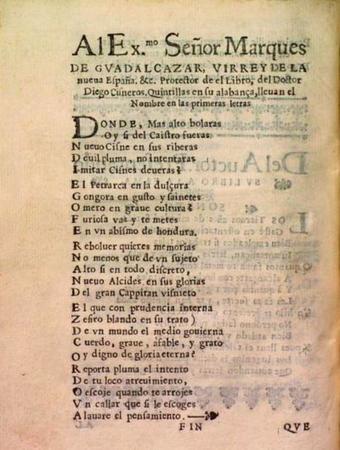 Al Ex.mo Señor Marques
DE GVADALCAZAR, VIRREY DE LA
nueua España. &c. Protector de el Libro, del Doctor
Diego Cisneros, Quintillas en su alabança, lleuan el
Nombre en las primeras letras
DONDE, Mas alto bolaras
Oy si del Caistro fueras
Nueuo Cisne en sus riberas
Deuil pluma, no intentaras
Imitar Cisnes deueras?
El Petrarca en la dulçura
Gongora en gusto y sainetes
Omero en graue cultura?
Furiosa vas y te metes
En vn abismo de hondura.
Reboluer quieres memorias
No menos que de vn sujeto
Alto si en todo discreto,
Nueuo Alcides en sus glorias
Del gran Cappitan visnieto
El que con prudencia interna
Zefiro blando en su trato)
De vn mundo el medio gouierna
Cuerdo, graue, afable, y grato
Oy digno de gloria eterna?
Reporta pluma el intento
De tu loco atreuimiento,
O escoje quando te arrojes
Vn callar que si le escoges
Alauare el pensamiento.
FIN QVE